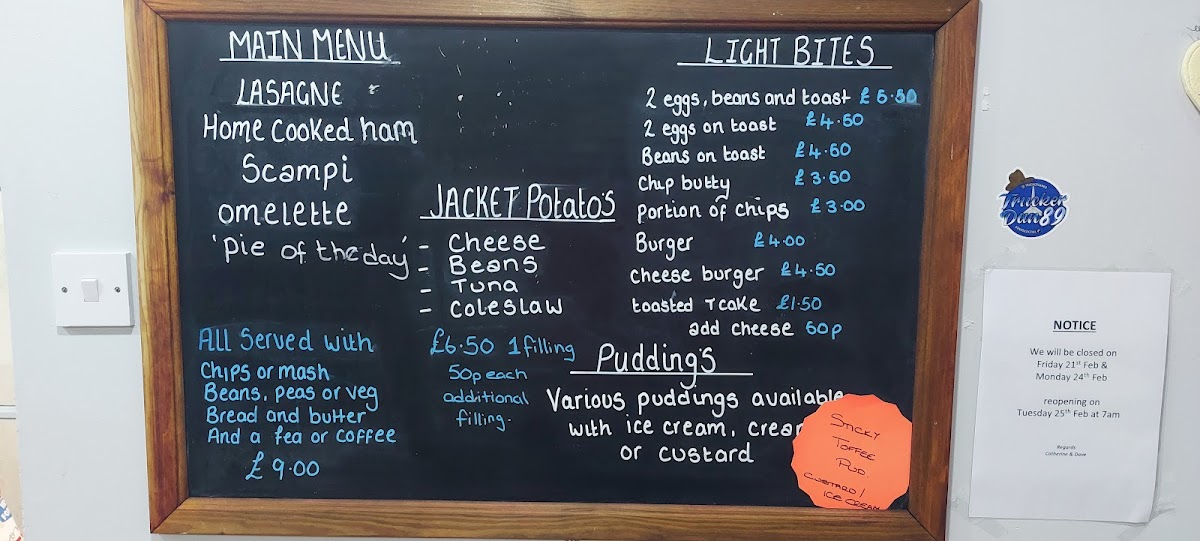 MAIN MENU
LASAGNE
Home cooked ham
Scampi
omelette
'pie of the day'
All Served with
Chips or mash
Beans, peas or veg
Bread and butter
And a tea or coffee
£9.00
JACKET Potato's
- Cheese
- Beans
- Tuna
- Coleslaw
£6.50 1 filling
50p each
additional
filling.
LIGHT BITES
2 eggs, beans and toast £5.50
2 eggs on toast £4.50
Beans on toast £4.50
Chip butty £3.50
portion of chips £3.00
Burger £4.00
cheese burger £4.50
toasted Tcake £1.50
add cheese 50p
Pudding's
Various puddings available
with ice cream, cream
or custard
STICKY
TOFFEE
PUD
CUSTARD/
ICE CREAM
Trucker
Dan89
NOTICE
We will be closed on
Friday 21st Feb &
Monday 24th Feb
reopening on
Tuesday 25th Feb at 7am
Regards
Catherine & Dave